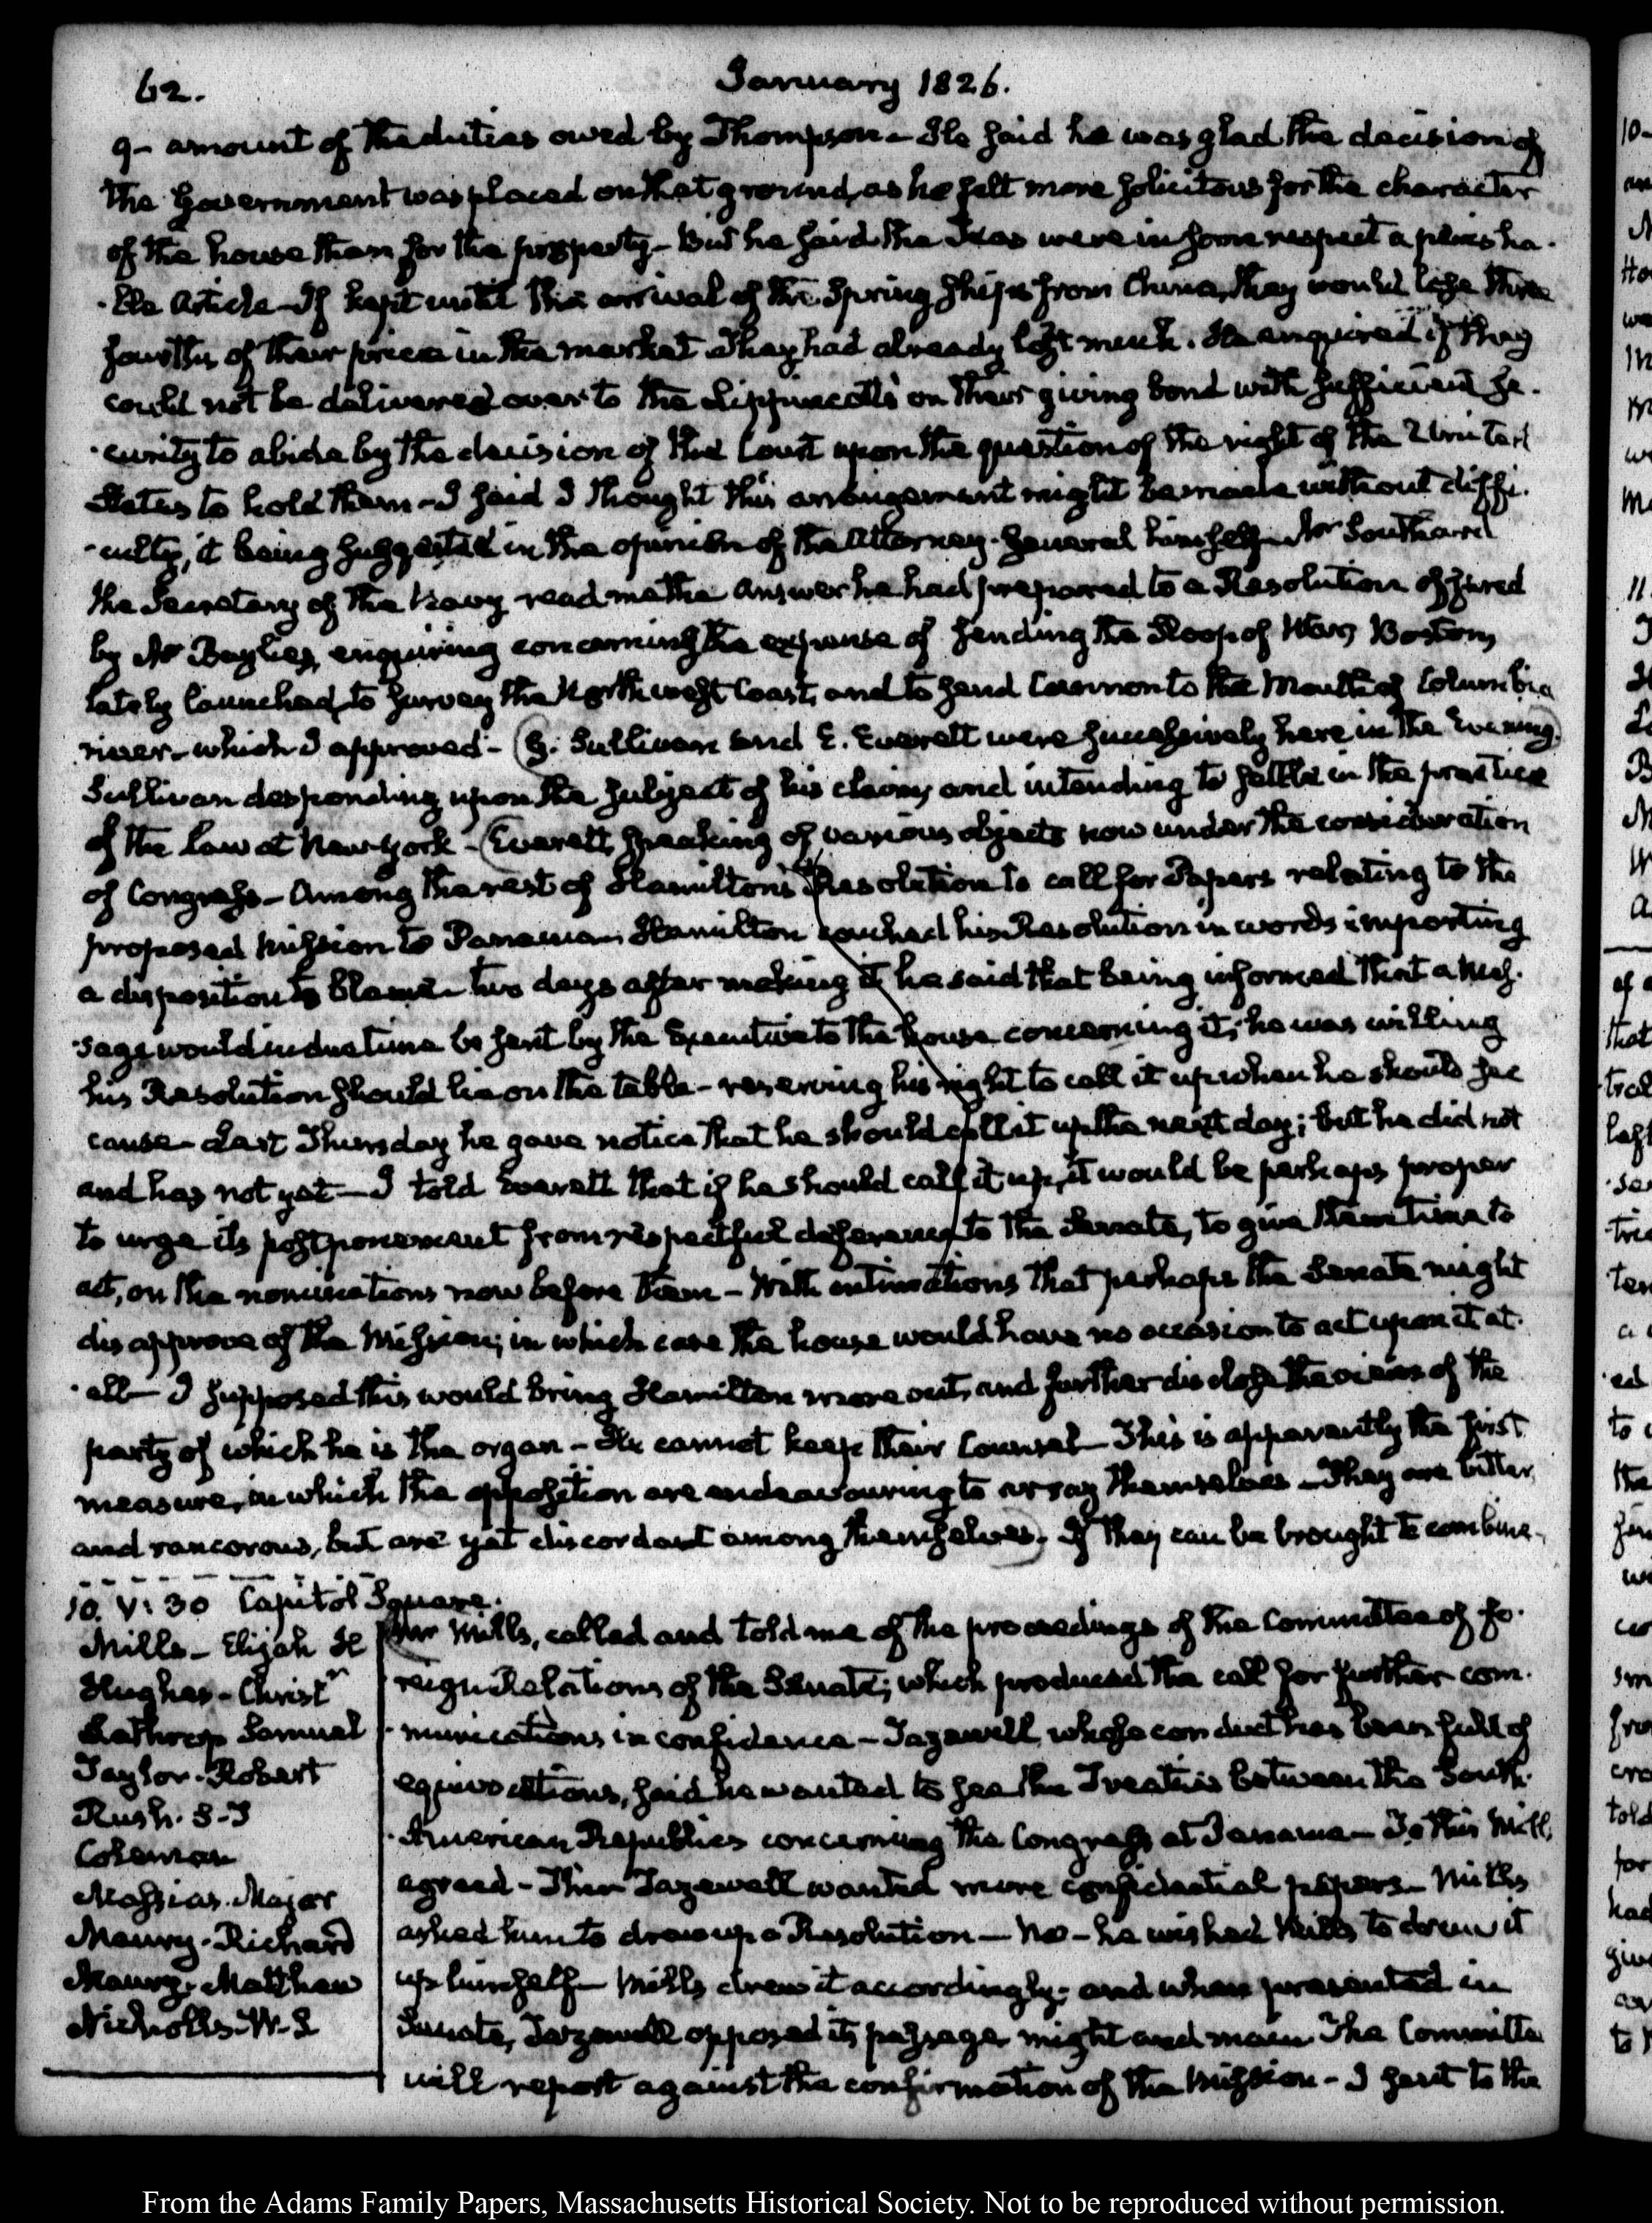 62.
January 1826.
9- amount of the duties owed by Thompson- He said he was glad the decision of
the Government was placed on that ground, as he felt more solicitous for the character
of the house than for the property- But he said the Teas were in some respect a perisha-
-ble Article- If kept until the arrival of the Spring ships from China, they would lose three
fourths of their price in the market. They had already lost much. He enquired if they
could not be delivered over to the Lippincotts on their giving bond with sufficient se-
-curity to abide by the decision of the Court upon the question of the right of the United
States to hold them- I said I thought this arrangement might be made without diffi-
-culty, it being suggested in the opinion of the Attorney-General himself- Mr Southard
the Secretary of the Navy read me the answer he had prepared to a Resolution offered
by Mr Baylies, enquiring concerning the expense of sending the Sloop of War, Boston,
lately launched, to survey the Northwest Coast, and to send Cannon to the Mouth of Columbia
river- which I approved- (G. Sullivan and E. Everett were successively here in the Evening.)
Sullivan desponding upon the subject of his claims, and intending to settle in the practice
of the Law at New-York- (Everett, speaking of various objects now under the consideration
of Congress- Among the rest of Hamilton's Resolution to call for Papers relating to the
proposed Mission to Panama. Hamilton couched his Resolution in words importing
a disposition to blame- two days after making it, he said that being informed that a Mes-
-sage would in due time be sent by the Executive to the house concerning it, he was willing
his Resolution should lie on the table- reserving his right to call it up when he should see
cause- Last Thursday he gave notice that he should call it up the next day; but he did not
and has not yet- I told Everett that if he should call it up, it would be perhaps proper
to urge its postponement from respectful deference to the Senate, to give them time to
act, on the nominations now before them- With intimations that perhaps the Senate might
disapprove of the Mission; in which case the house would have no occasion to act upon it at
-all- I supposed this would bring Hamilton more out, and further disclose the views of the
party of which he is the organ- He cannot keep their Counsel- This is apparently the first
measure, in which the opposition are endeavouring to array themselves- They are bitter
and rancorous, but are yet discordant among themselves). If they can be brought to combine-
10. V: 30 Capitol Square.
Mills- Elijah H
Hughes- Christr
Lathrop Samuel
Taylor. Robert
Rush.
Coleman
Massias. Major
Maury. Richard
Maury. Matthew
Nicholls. W. S
(Mr Mills, called and told me of the proceedings of the Committee of fo-
reign Relations of the Senate; which produced the call for further com-
-munications in confidence- Tazewell, whose conduct has been full of
equivocations, said he wanted to see the Treaties between the South-
-American Republics concerning the Congress at Panama- To this Mills
agreed- Then Tazewell wanted more confidential papers- Mills
asked him to draw up a Resolution- No- he wished Mills to draw it
up himself- Mills drew it accordingly; and when presented in
Senate, Tazewell opposed its passage might and main. The Committee
will report against the confirmation of the Mission- I sent to the
From the Adams Family Papers, Massachusetts Historical Society. Not to be reproduced without permission.